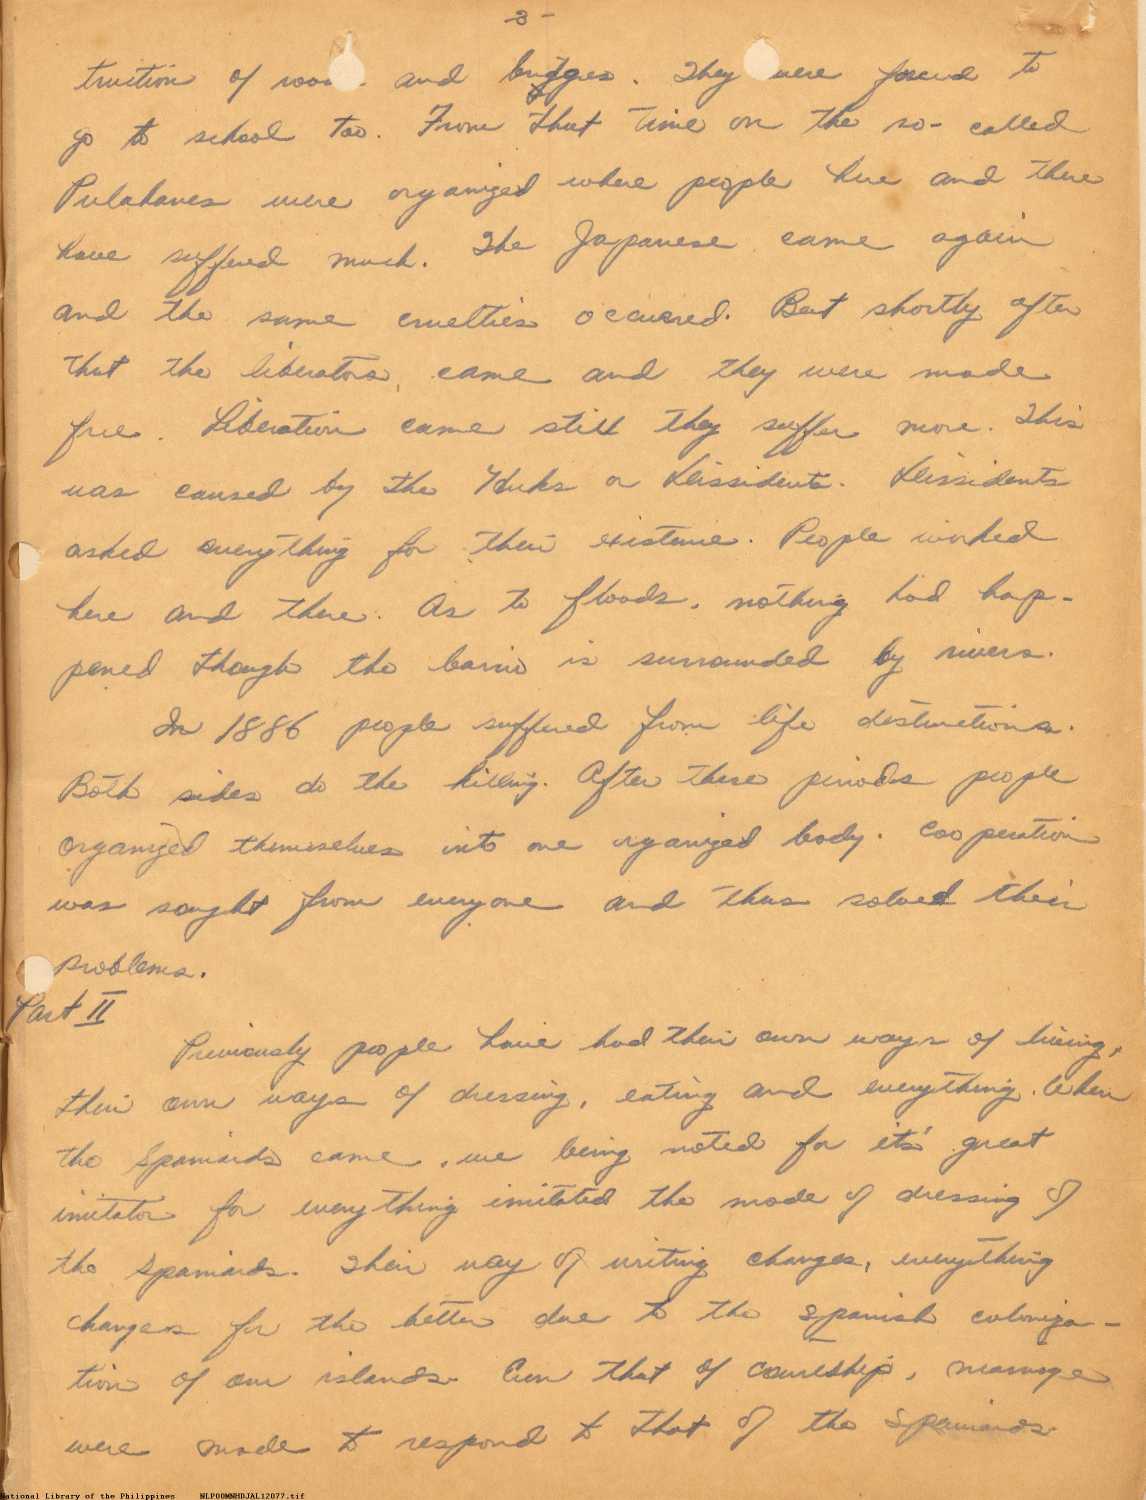 -3-
truction of roa and bridges. They were forced to
go to school too. From that time on the so-called
Pulahanes were organized where people here and there
have suffered much. The Japanese came again
and the same cruelties occured. But shortly after
that the liberators, came and they were made
free. Liberation came still they suffer more. This
was caused by the Huks or Dissidents. Dissidents
asked everything for their existence. People worked
here and there. As to floods, nothing had hap-
pened though the barrio is surrounded by rivers.
In 1886 people suffered from life destructions.
Both sides do the killing. After these periods people
organized themselves into one organized body. Cooperation
was sought from everyone and thus solved their
problems.
Part II
Previously people have had their own ways of living,
their own ways of dressing, eating and everything. When
the Spaniards came, we being noted for it's great
imitator for everything imitated the mode of dressing of
the Spaniards. Their way of writing changes, everything
changes for the better due to the Spanish coloniza-
tion of our islands. Even that of courtship, marriage
were made to respond to that of the Spaniards.
National Library of the Philippines NLP00MNHDJAL12077.tif